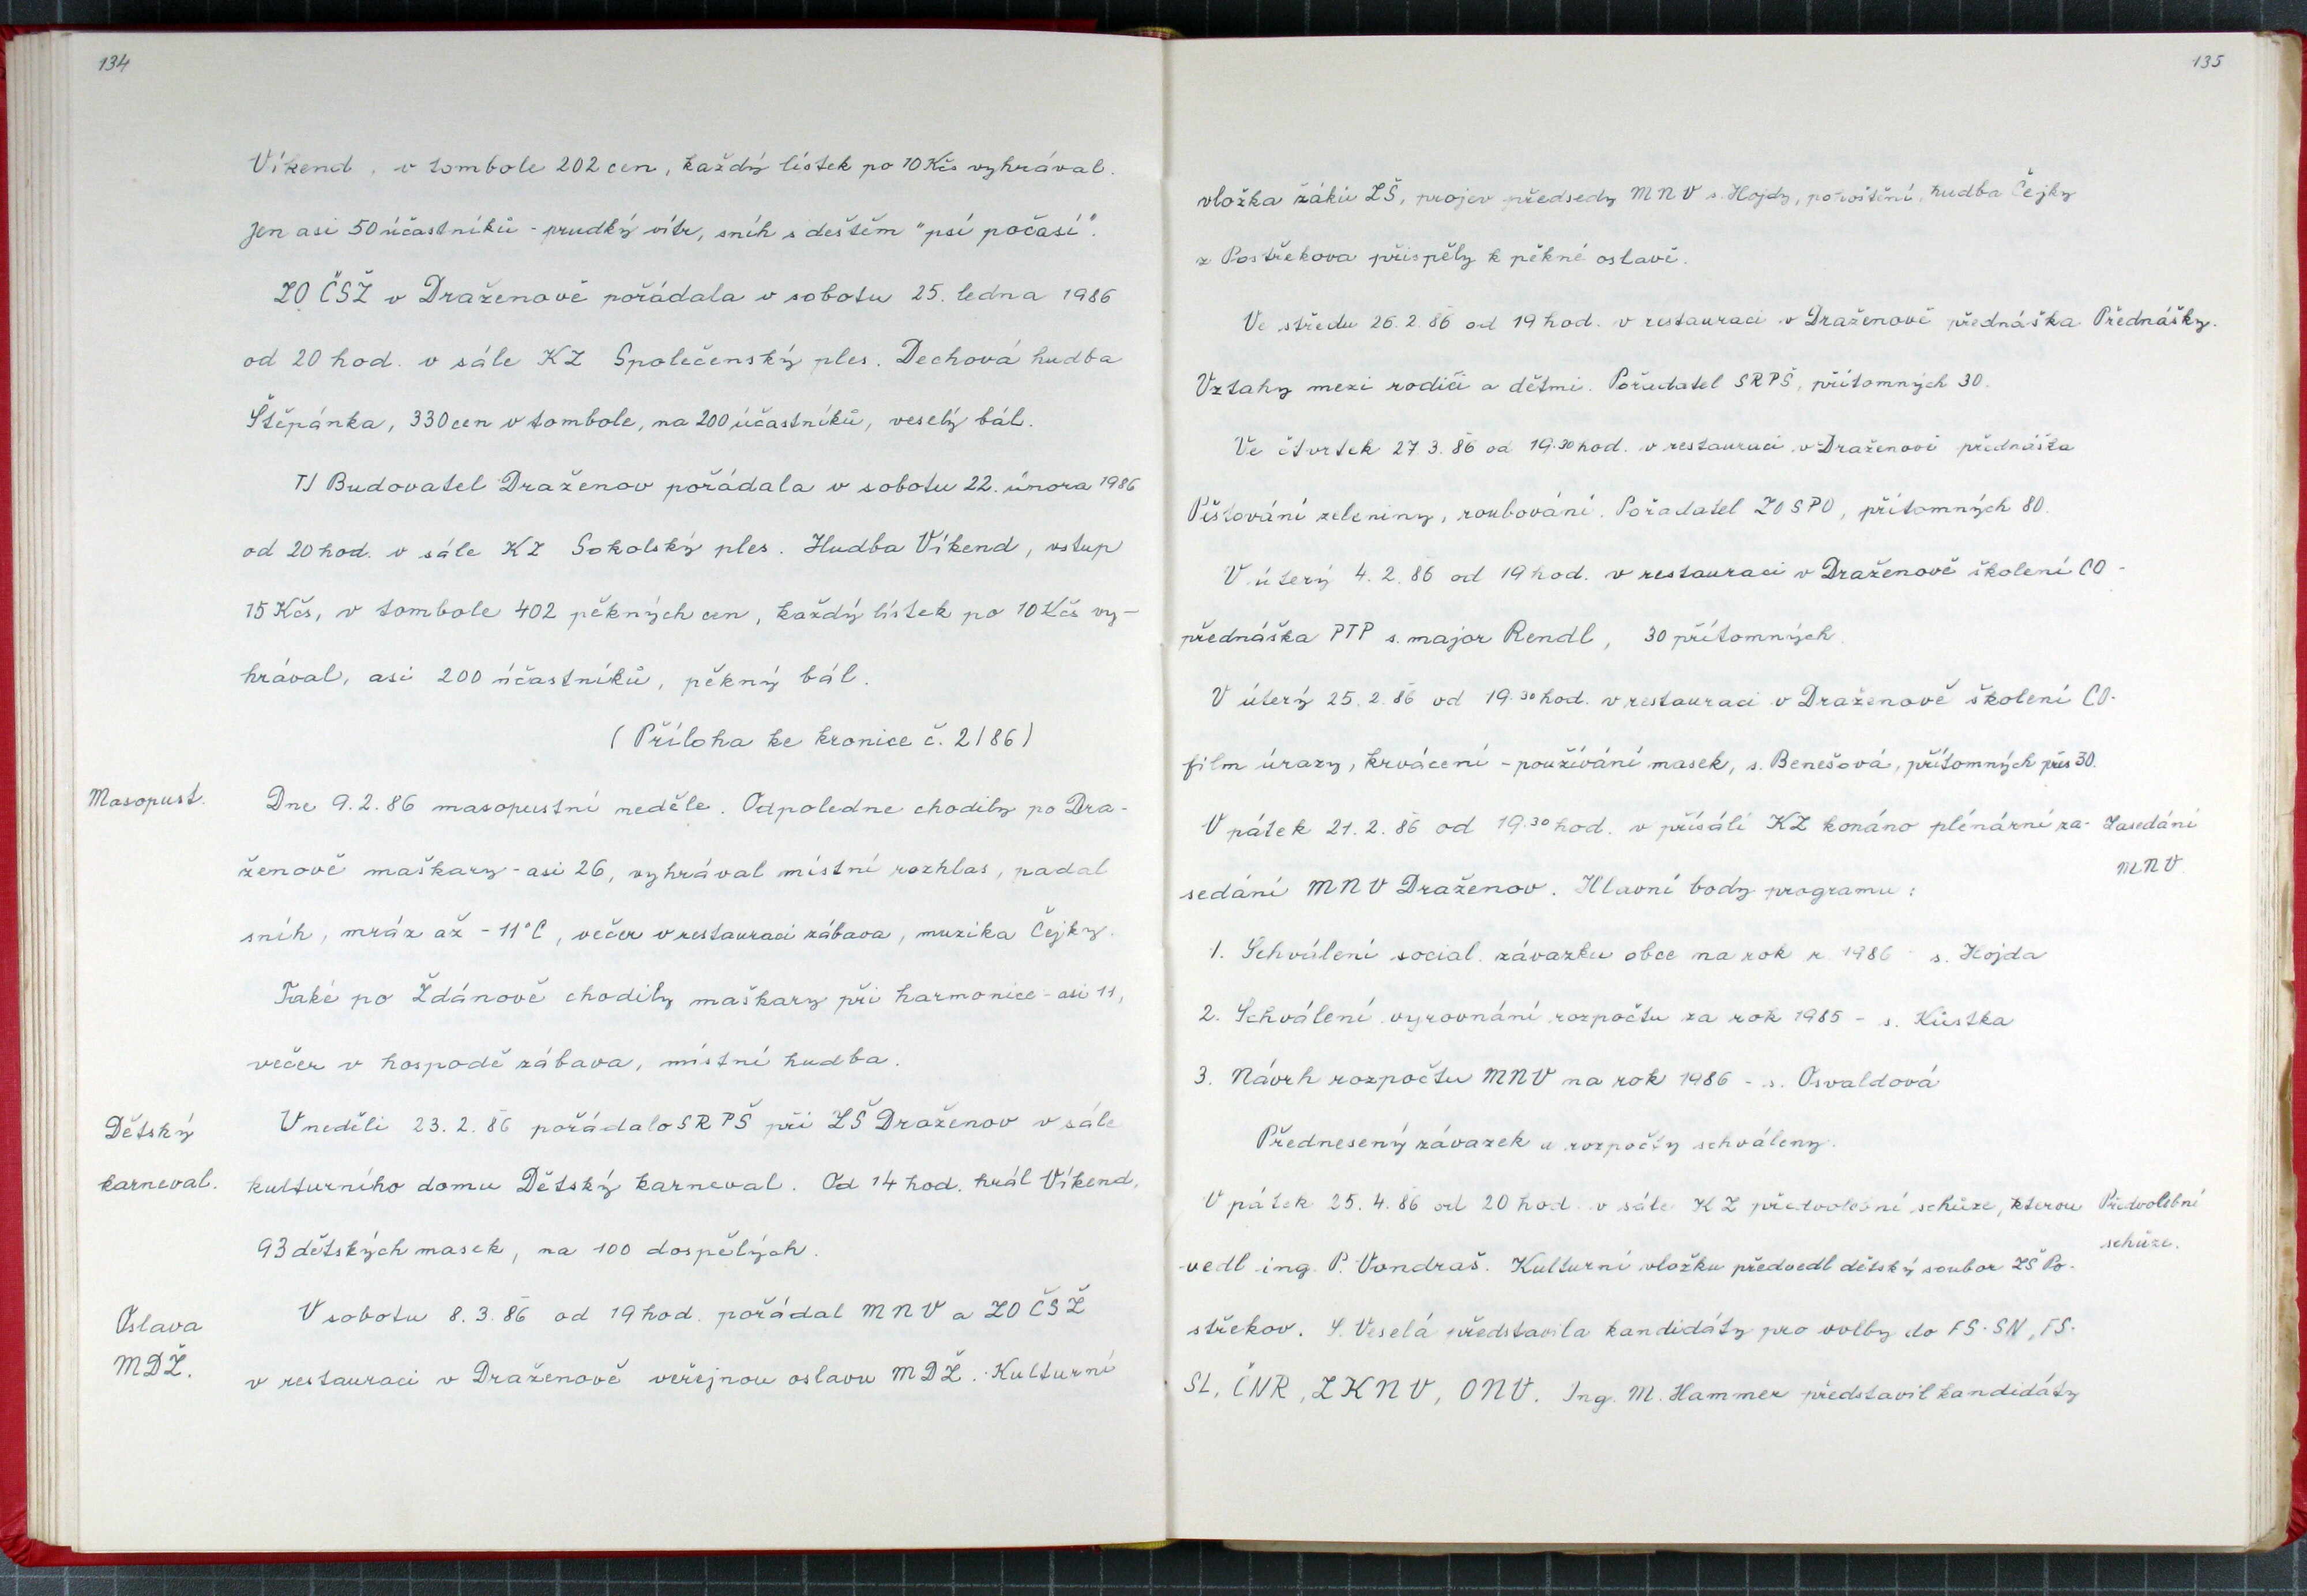 134
Víkend, v tombole 202 cen, každý lístek po 10 Kčs vyhrával.
Jen asi 50 účastníků - prudký vítr, sníh s deštěm "psí počasí".
ZO ČSŽ v Draženově pořádala v sobotu 25. ledna 1986
od 20 hod. v sále KZ Společenský ples. Dechová hudba
Štěpánka, 330 cen v tombole, na 200 účastníků, veselý bál.
TJ Budovatel Draženov pořádala v sobotu 22. února 1986
od 20 hod. v sále KZ Sokolský ples. Hudba Víkend, vstup
15 Kčs, v tombole 402 pěkných cen, každý lístek po 10 Kčs vy-
hrával, asi 200 účastníků, pěkný bál.
(Příloha ke kronice č. 2/86)
Masopust.
Dne 9.2.86 masopustní neděle. Odpoledne chodily po Dra-
ženově maškary - asi 26, vyhrával místní rozhlas, padal
sníh, mráz až - 11°C, večer v restauraci zábava, muzika Čejky.
Také po Ždánově chodily maškary při harmonice - asi 11,
večer v hospodě zábava, místní hudba.
Dětský
karneval.
V neděli 23.2.86 pořádalo SRPŠ při ZŠ Draženov v sále
kulturního domu Dětský karneval. Od 14 hod. hrál Víkend,
93 dětských masek, na 100 dospělých.
Oslava
MDŽ.
V sobotu 8.3.86 od 19 hod. pořádal MNV a ZO ČSŽ
v restauraci v Draženově veřejnou oslavu MDŽ. Kulturní
135
vložka žáků ZŠ, projev předsedy MNV s. Hojdy, pohoštění, hudba Čejky
z Postřekova přispěly k pěkné oslavě.
Ve středu 26.2.86 od 19 hod. v restauraci v Draženově přednáška
Přednášky.
Vztahy mezi rodiči a dětmi. Pořadatel SRPŠ, přítomných 30.
Ve čtvrtek 27.3.86 od 19.30 hod. v restauraci v Draženově přednáška
Pěstování zeleniny, roubování. Pořadatel ZO SPO, přítomných 80.
V úterý 4.2.86 od 19 hod. v restauraci v Draženově školení CO -
přednáška PTP s. major Rendl, 30 přítomných.
V úterý 25.2.86 od 19.30 hod. v restauraci v Draženově školení CO-
film úrazy, krvácení - používání masek, s. Benešová, přítomných přes 30.
V pátek 21.2.86 od 19.30 hod. v přísálí KZ konáno plénární za-
Zasedání
MNV.
sedání MNV Draženov. Hlavní body programu:
1. Schválení social. závazku obce na rok r. 1986 - s. Hojda
2. Schválení vyrovnání rozpočtu za rok 1985 - s. Kůstka
3. Návrh rozpočtu MNV na rok 1986 - s. Osvaldová
Přednesený závazek a rozpočty schváleny.
V pátek 25.4.86 od 20 hod. v sále KZ předvolební schůze, kterou
Předvolební
schůze.
vedl ing. P. Vondraš. Kulturní vložku předvedl dětský soubor ZŠ Po-
střekov. S. Veselá představila kandidáty pro volby do FS-SN, FS-
SL, ČNR, ZKNV, ONV. Ing. M. Hammer představil kandidáty